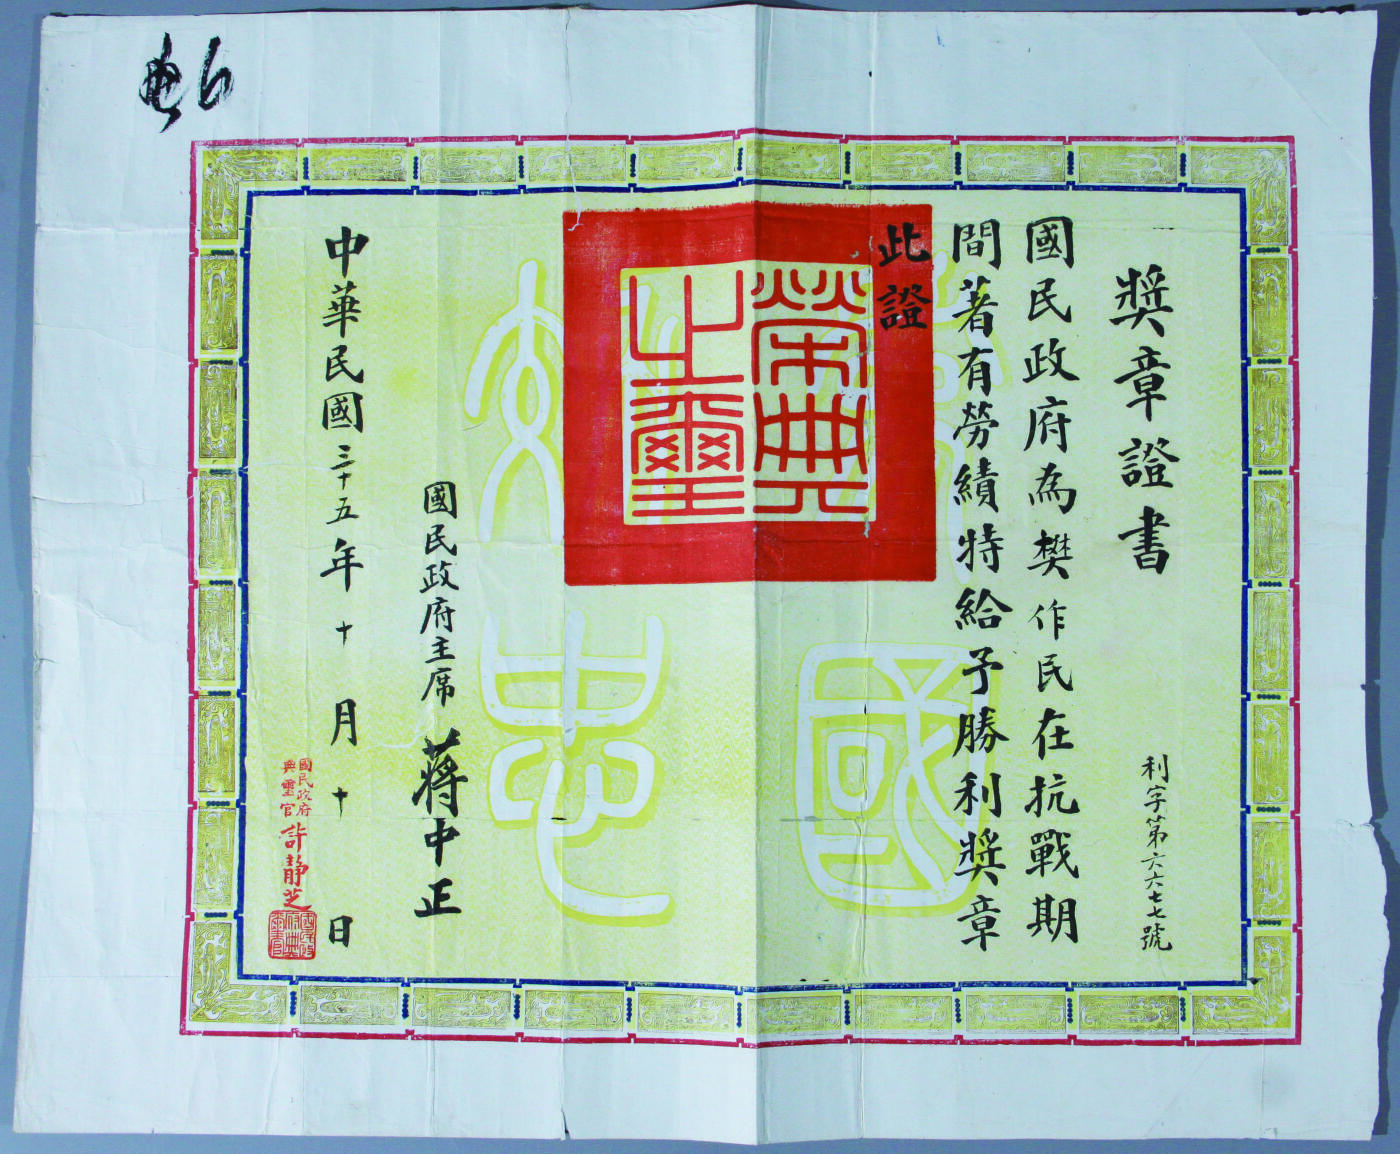 獎章證書
利字第六六七七號
國民政府為樊作民在抗戰期
間著有勞績特給予勝利獎章
此證
榮典之璽
國民政府主席 蔣中正
中華民國三十五年十月十日
國民政府
典璽官 許靜芝